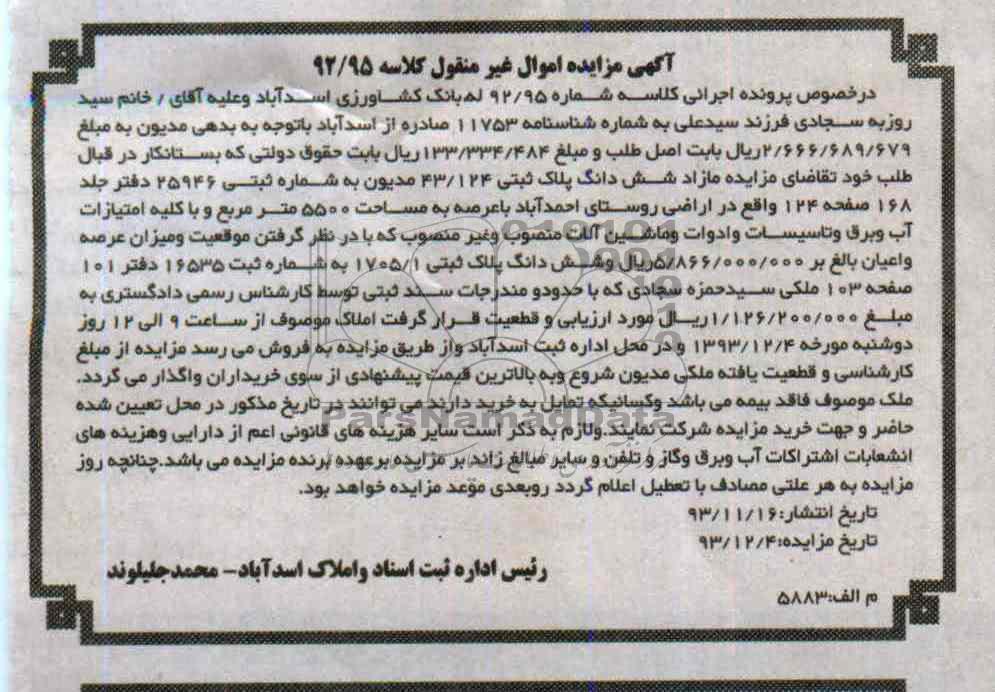 آگهی مزایده اموال غیر منقول کلاسه ۹۲/۹۵
درخصوص پرونده اجرائی کلاسه شماره ۹۲/۹۵ له بانک کشاورزی اسدآباد وعلیه آقای / خانم سید
روزبه سجادی فرزند سیدعلی به شماره شناسنامه ۱۱۷۵۳ صادره از اسدآباد باتوجه به بدهی مدیون به مبلغ
۲/۶۶۶/۶۸۹/۶۷۹ریال بابت اصل طلب و مبلغ ۱۳۳/۳۳۴/۴۸۴ریال بابت حقوق دولتی که بستانکار در قبال
طلب خود تقاضای مزایده مازاد شش دانگ پلاک ثبتی ۴۳/۱۲۴ مدیون به شماره ثبتی ۲۵۹۴۶ دفتر جلد
۱۶۸ صفحه ۱۲۴ واقع در اراضی روستای احمدآباد باعرصه به مساحت ۵۵۰۰ متر مربع و با کلیه امتیازات
آب وبرق وتاسیسات وادوات وماشین آلات منصوب وغیر منصوب که با در نظر گرفتن موقعیت ومیزان عرصه
واعیان بالغ بر ۵/۸۶۶/۰۰۰/۰۰۰ریال وشش دانگ پلاک ثبتی ۱۷۰۵/۱ به شماره ثبت ۱۶۵۳۵ دفتر ۱۰۱
صفحه ۱۰۳ ملکی سیدحمزه سجادی که با حدودو مندرجات سند ثبتی توسط کارشناس رسمی دادگستری به
مبلغ ۱/۱۲۶/۲۰۰/۰۰۰ریال مورد ارزیابی و قطعیت قرار گرفت املاک موصوف از ساعت ۹ الی ۱۲ روز
دوشنبه مورخه ۱۳۹۳/۱۲/۴ و در محل اداره ثبت اسدآباد واز طریق مزایده به فروش می رسد مزایده از مبلغ
کارشناسی و قطعیت یافته ملکی مدیون شروع وبه بالاترین قیمت پیشنهادی از سوی خریداران واگذار می گردد.
ملک موصوف فاقد بیمه می باشد وکسانیکه تمایل به خرید دارند می توانند در تاریخ مذکور در محل تعیین شده
حاضر و جهت خرید مزایده شرکت نمایند.ولازم به ذکر است سایر هزینه های قانونی اعم از دارایی وهزینه های
انشعابات اشتراکات آب وبرق وگاز و تلفن و سایر مبالغ زائد بر مزایده برعهده برنده مزایده می باشد.چنانچه روز
مزایده به هر علتی مصادف با تعطیل اعلام گردد روبعدی موعد مزایده خواهد بود.
تاریخ انتشار:۹۳/۱۱/۱۶
تاریخ مزایده:۹۳/۱۲/۴
رئیس اداره ثبت اسناد واملاک اسدآباد– محمدجلیلوند
م الف:۵۸۸۳
ParsNamadData